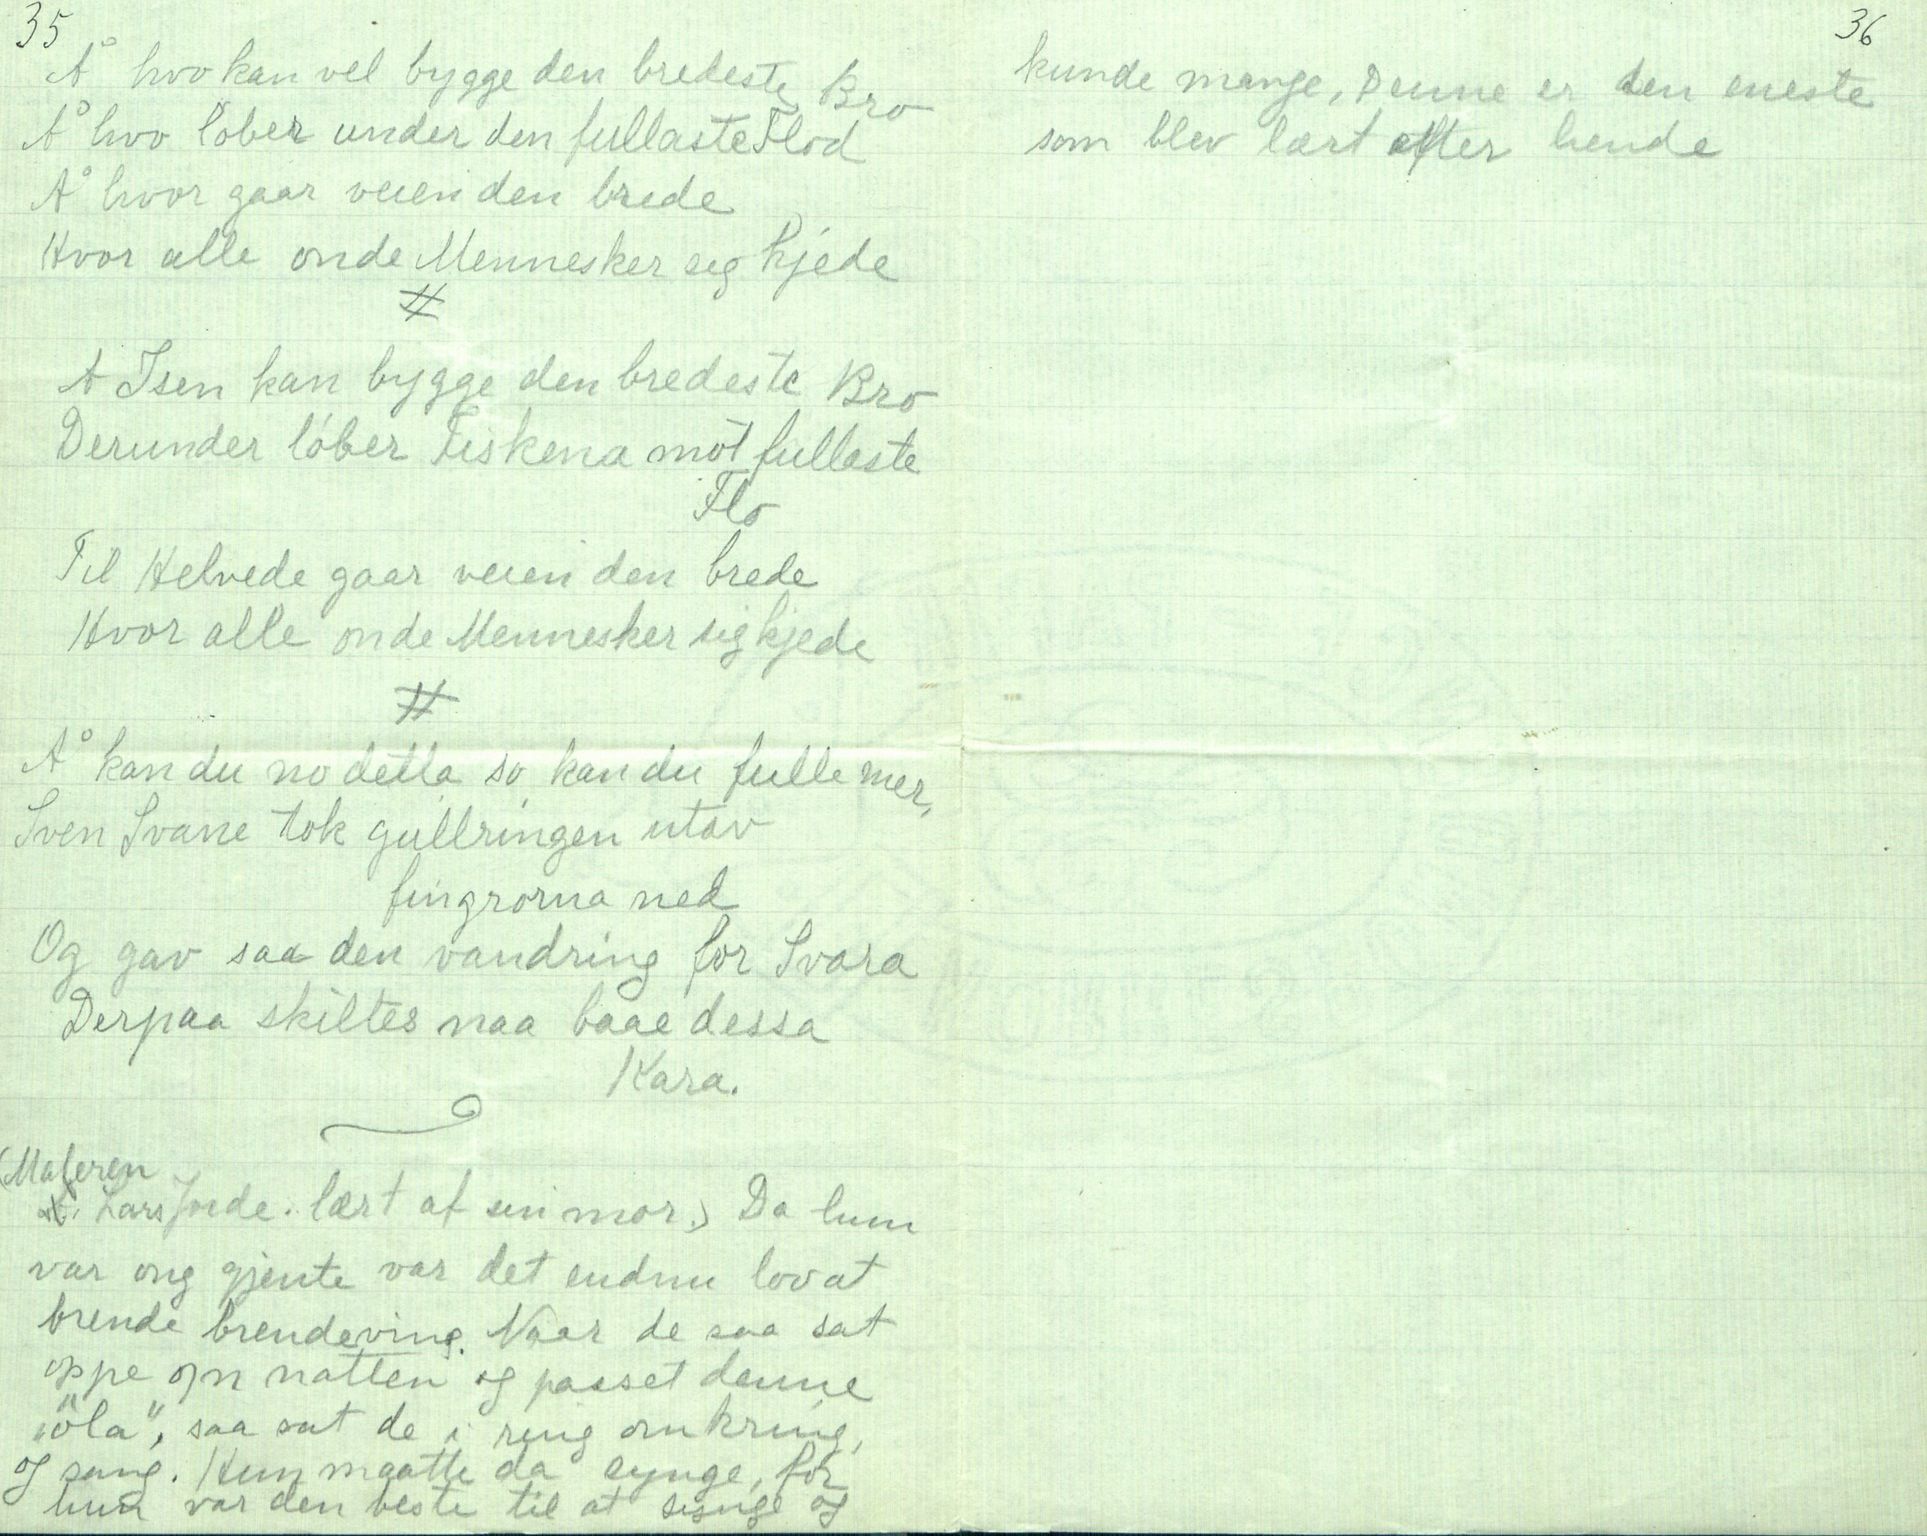 35
Å hvo kan vel bygge den bredeste Bro
Å hvo løber under den fullaste Flod
Å hvor gaar veien den brede
Hvor alle onde Mennesker seg kjede
#
A Isen kan bygge den bredeste Bro
Derunder löber Fiskena mot fullaste
Flo
Til Helvede gaar veien den brede
Hvor alle onde Mennesker sig kjede
#
Å kan du no detta so kan du fulle mer,
Sven Svane tok gullringen utav
fingrorna ned
Og gav saa den vandring for Svara
Derpaa skiltes naa baae dessa
Kara.
(Maleren
Lars Jorde. lært af sin mor.) Da hun
var ong gjente var det endnu lov at
brende brendeving. Naar de saa sat
oppe om natten og passet denne
"öla", saa sat de i ring omkring,
og sang. Hun maatte da synge, for
hun var den beste til at synge og
36
kunde mange, Denne er den eneste
som blev lært efter hende